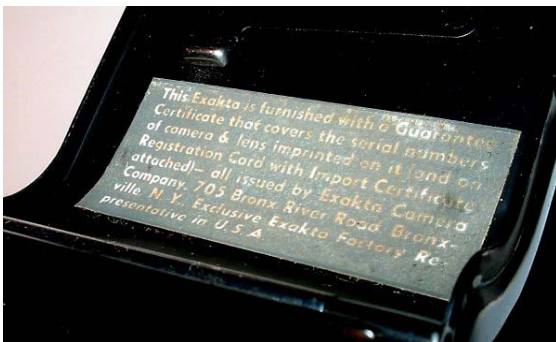 This Exakta is furnished with a Guarantee
Certificate that covers the serial numbers
of camera & lens imprinted on it (and on
Registration Card with Import Certificate
attached)– all issued by Exakta Camera
Company. 705 Bronx River Road Bronx-
ville N.Y. Exclusive Exakta Factory Re-
presentative in U.S.A